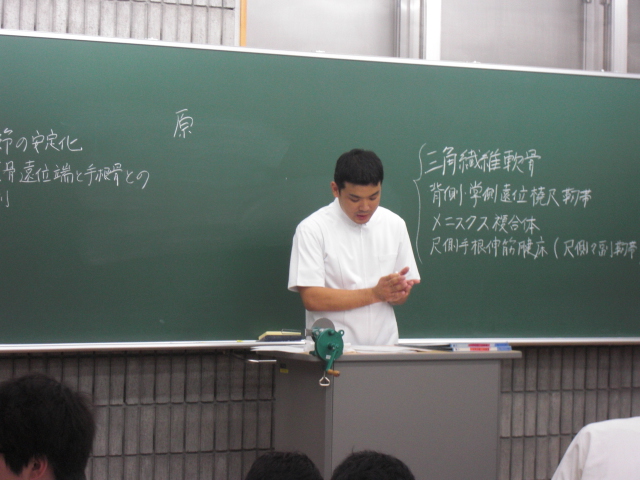 節の安定化
骨遠位端と手根骨との
原
三角繊維軟骨
背側・掌側遠位橈尺靭帯
メニスクス複合体
尺側手根伸筋腱床(尺側々副靭帯